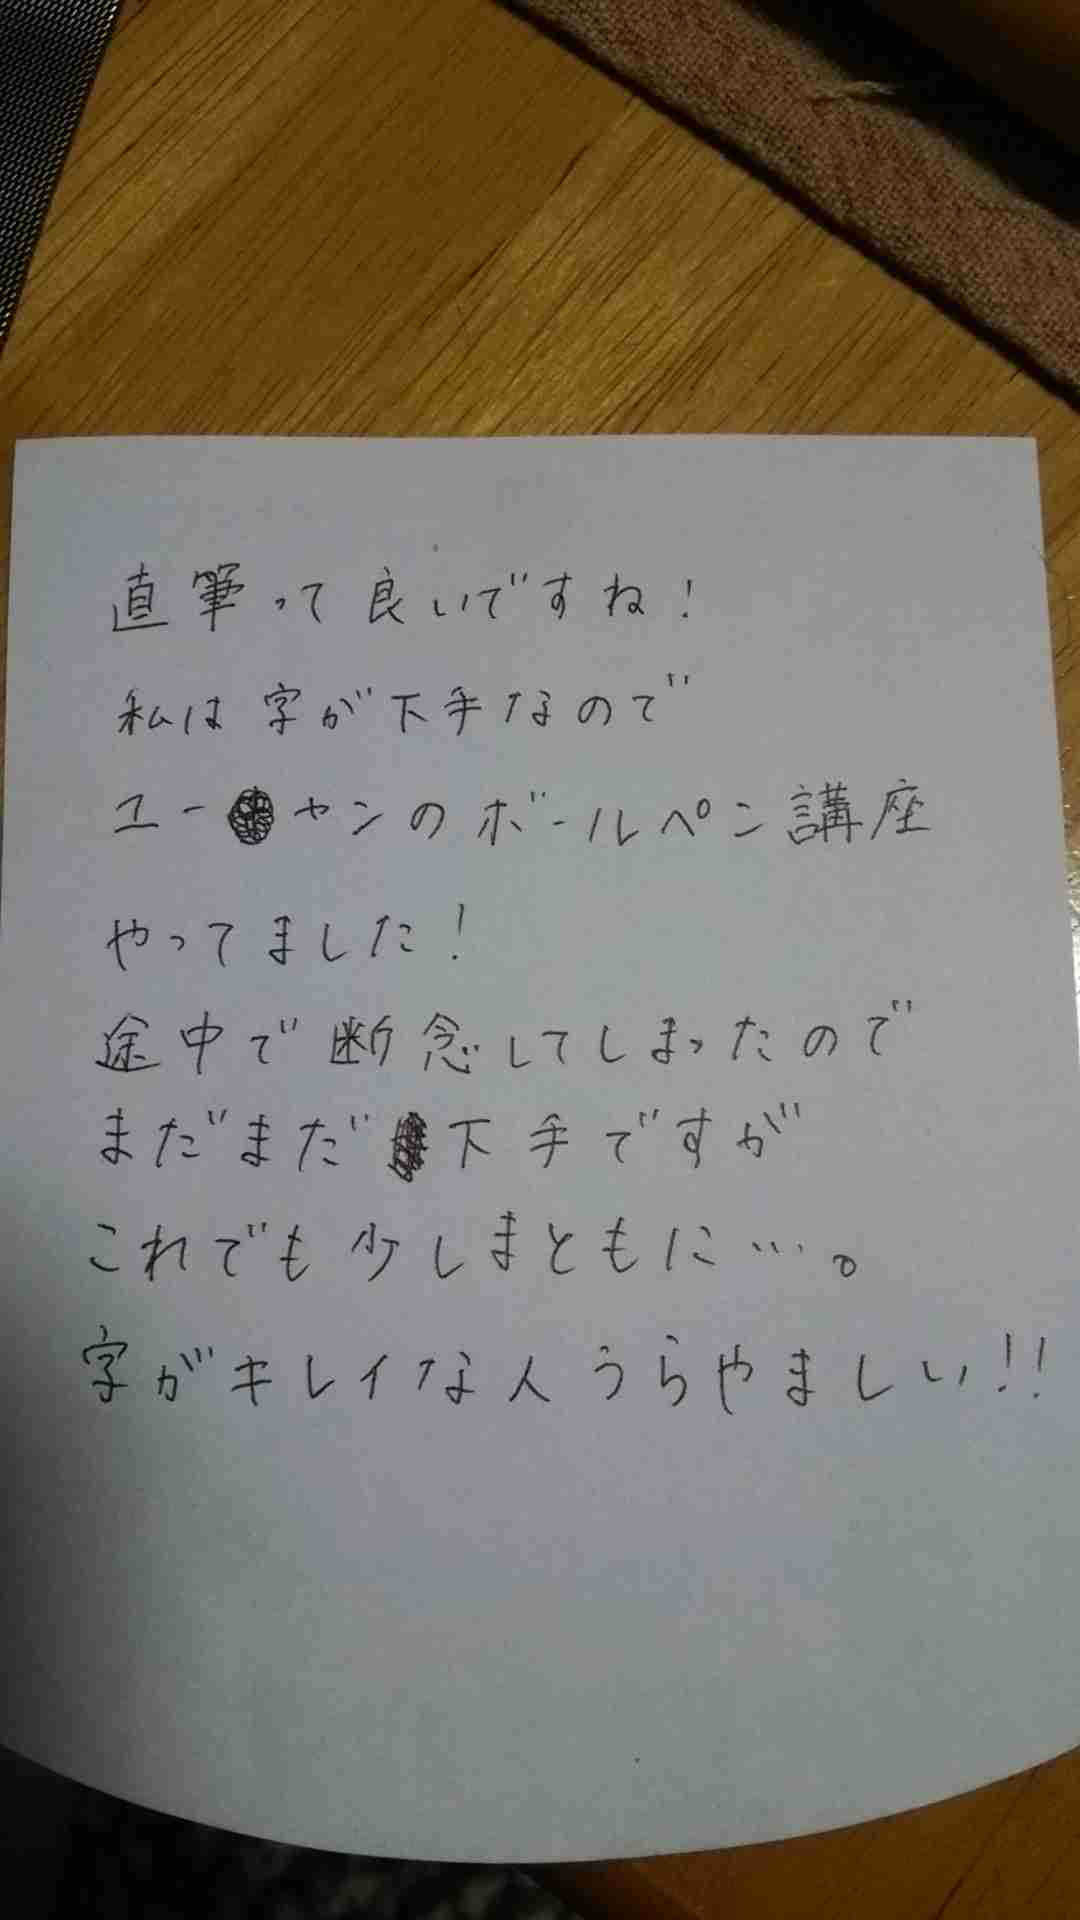 直筆って良いですね!
私は字が下手なので
ユーャンのボールペン講座
やってました!
途中で断念してしまったので
まだまだ下手ですが
これでも少しまともに…。
字がキレイな人うらやましい!!